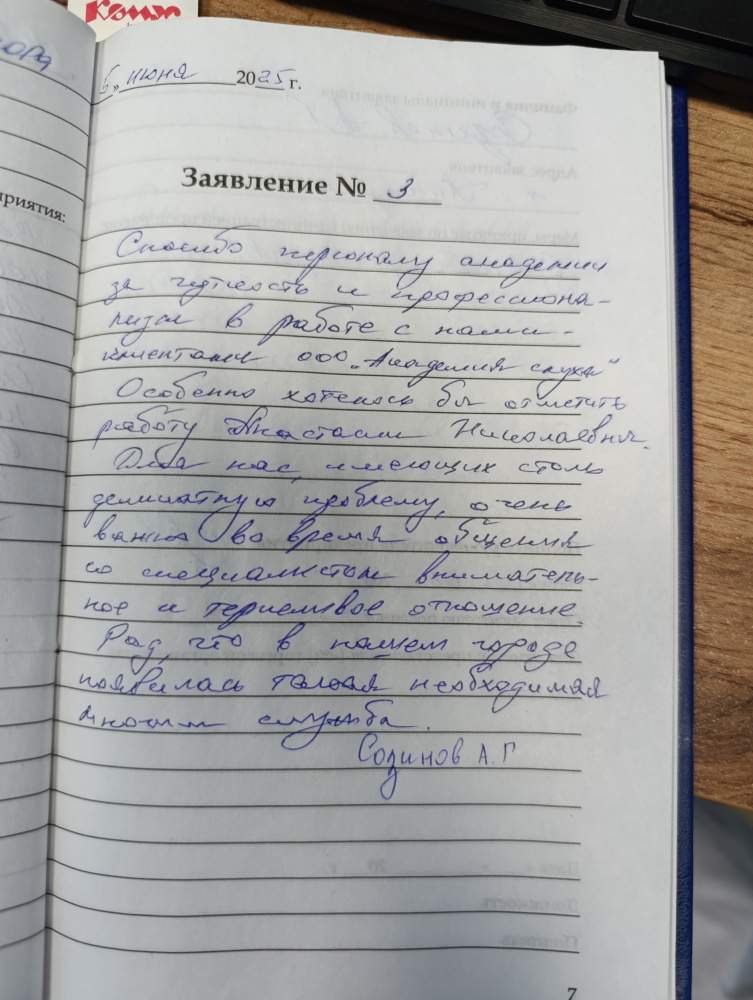 Комус
6 „ июня 2025 г.
приятия:
Заявление № 3
Спасибо персоналу академии
за чуткость и профессиона-
лизм в работе с нами -
клиентами ООО „Академия слуха"
Особенно хотелось бы отметить
работу Анастасии Николаевны.
Для нас, имеющих столь
деликатную проблему, очень
важно во время общения
со специалистом вниматель-
ное и терпеливое отношение.
Рад, что в нашем городе
появилась такая необходимая
многим служба.
Созинов А.Г
7